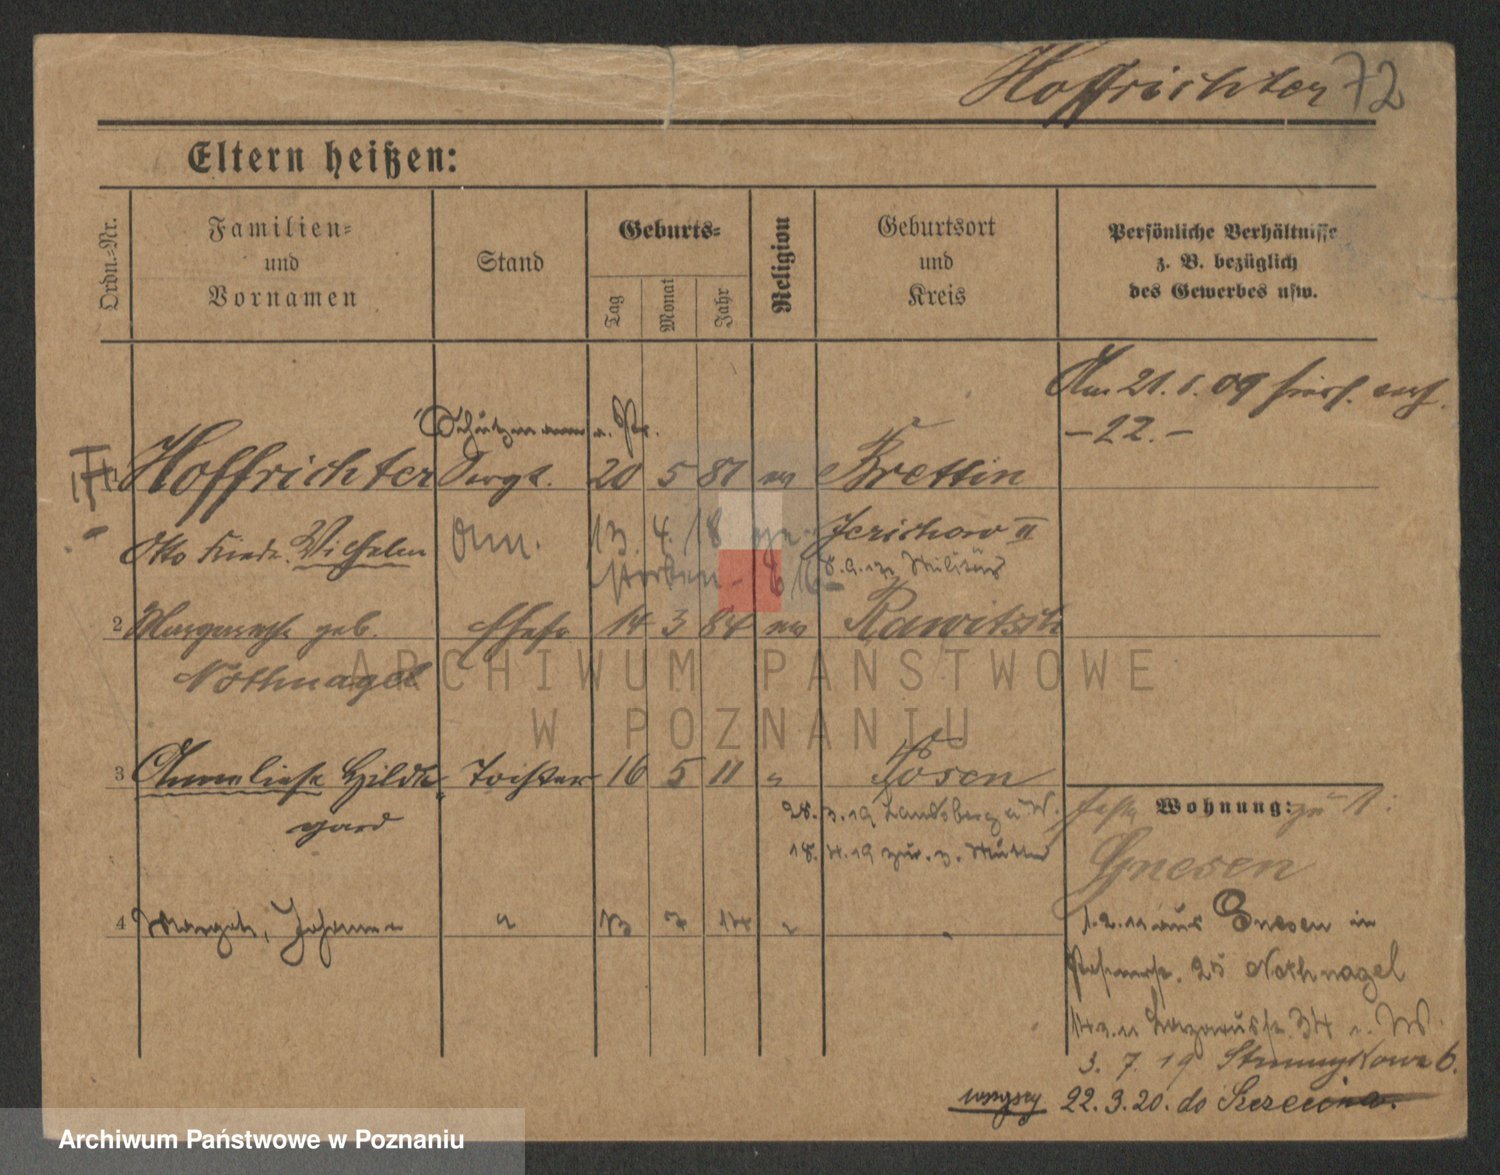 Hoffrichter 72
Eltern heißen:
Ordn.-Nr.
Familien-
und
Vornamen
Stand
Geburts-
Tag
Monat
Jahr
Religion
Geburtsort
und
Kreis
Persönliche Verhältnisse
z. B. bezüglich
des Gewerbes usw.
Am 21. 09
-22.-
Schutzmann
1 Hoffrichter Sergt. 20 5 81 ev Brettin
Otto Friedr. Wilhelm 13. 4. 18 Jerichow II
storben Militär
2 Margarethe geb. Ehefr 14 3 84 ev Rawitsch
Nothnagel
ARCHIWUM PAŃSTWOWE
W POZNANIU
3 Anneliese Hilde- Tochter 16 5 11 " Posen
gard
28. 3. 19 Landsberg a W.
18. 4. 19 zur. z. Mutter
Wohnung:
Gnesen
4 Margot, Johanna " 13 7 14 "
1. 2. 11 aus Gnesen in
25 Nothnagel
34
3. 7. 19 Strumykowa 6.
wszyscy 22. 3. 20. do Szczecina.
Archiwum Państwowe w Poznaniu